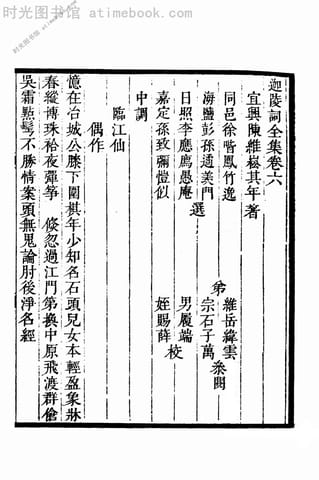 时光图书馆 - atimebook.com
迦陵詞全集卷六
宜興陳維崧其年著
同邑徐喈鳳竹逸
海鹽彭孫遹羨門
選
日照李應廌愚庵
嘉定孫致彌愷似
弟
維岳緯雲
宗石子萬
叅閱
男履端
姪賜薛
校
中調
臨江仙
偶作
憶在冶城公膝下圍棋年少知名石頭兒女本輕盈象牀
春縱博珠袷夜彈箏 倏忽過江門第換中原飛渡群傖
吳霜點鬢不勝情案頭無鬼論肘後淨名經